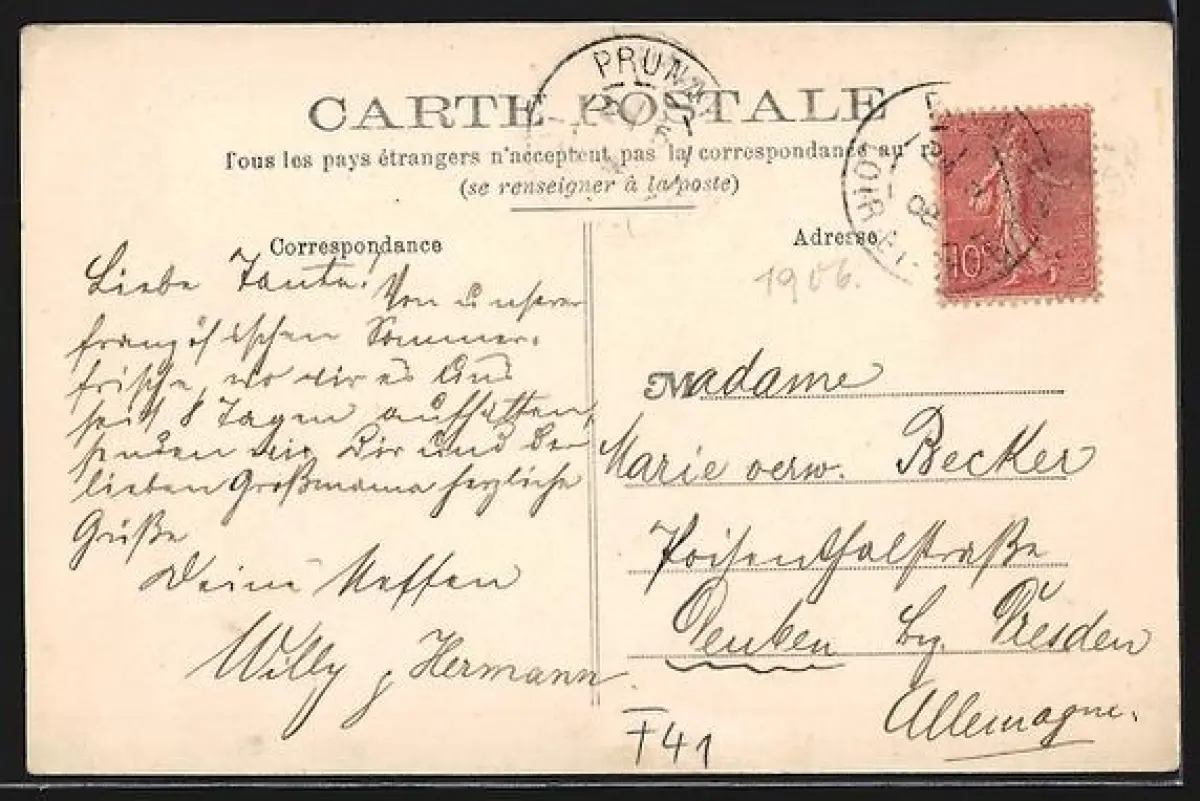 CARTE POSTALE
Tous les pays étrangers n'acceptent pas la correspondance au
(se renseigner à la poste)
PRUNAY
Correspondance
Adresse
1906.
LOIR-ET-
10c
Liebe Tante!
Von unserer
französischen Sommer-
frische, wo wir uns
seit 8 Tagen aufhalten,
senden wir Dir und der
lieben Großmama herzliche
Grüße
Deine Neffen
Willy, Hermann
Madame
Marie verw. Becker
Deuben bz. Dresden
Allemagne.
T41